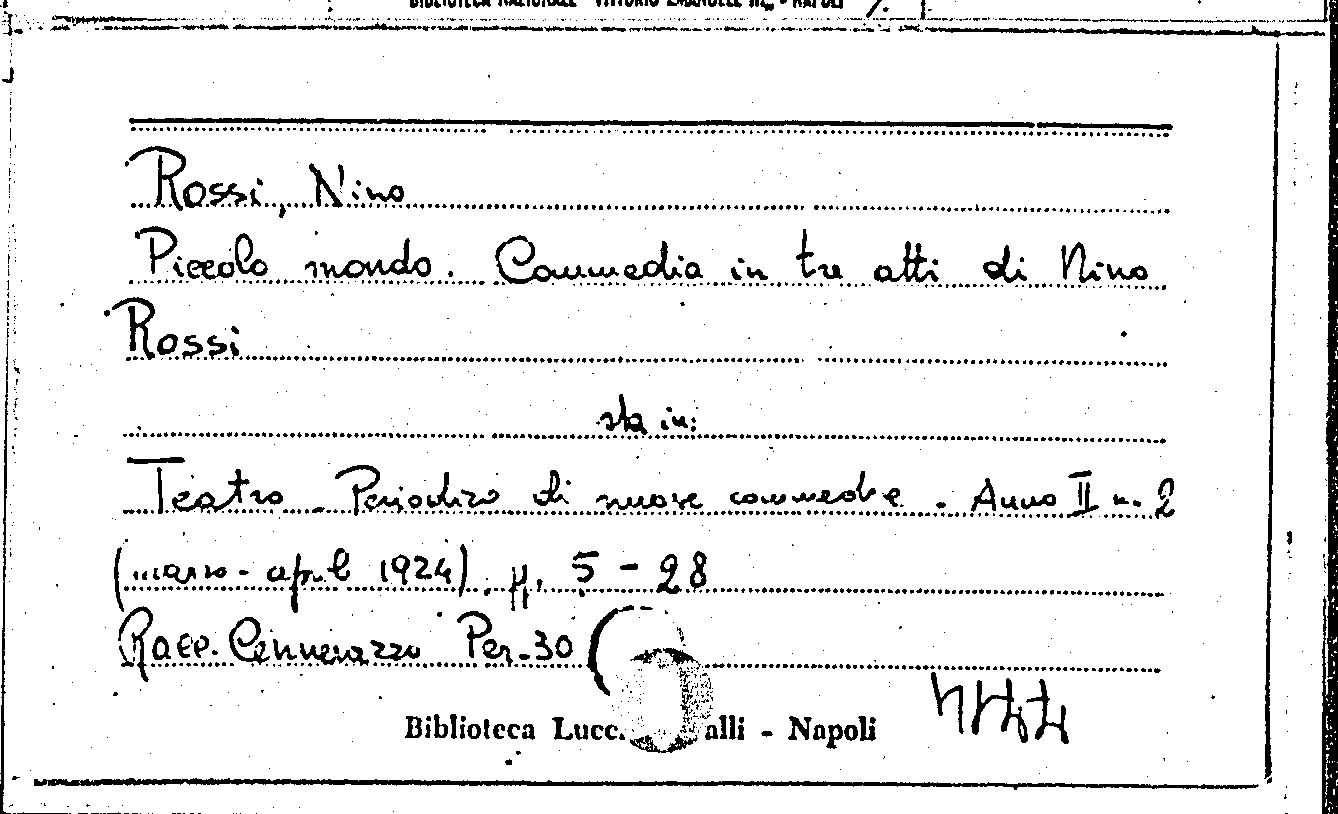 BIBLIOTECA NAZIONALE VITTORIO EMANUELE III - NAPOLI
Rossi, Nino
Piccolo mondo. Commedia in tre atti di Nino
Rossi
sta in:
Teatro. Periodico di nuove commedie. Anno II n. 2
(marzo-aprile 1924). pp. 5-28
Racc. Cennerazzo Per. 30
Biblioteca Lucc. alli - Napoli